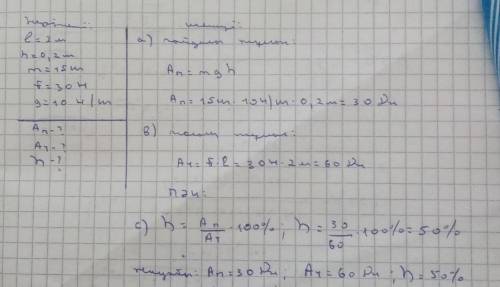 l = 2 м
h = 0,2 м
m = 15 кг
F = 30 Н
g = 10 Н/кг
Aп - ?
Aт - ?
η - ?
a) пайдалы жұмыс:
Aп = mgh
Aп = 15 кг · 10 Н/кг · 0,2 м = 30 Дж
b) толық жұмыс:
Aт = F · l = 30 Н · 2 м = 60 Дж
ПӘК:
c) η = Aп/Aт · 100% ; η = 30/60 · 100% = 50%
жауабы: Aп = 30 Дж ; Aт = 60 Дж ; η = 50%